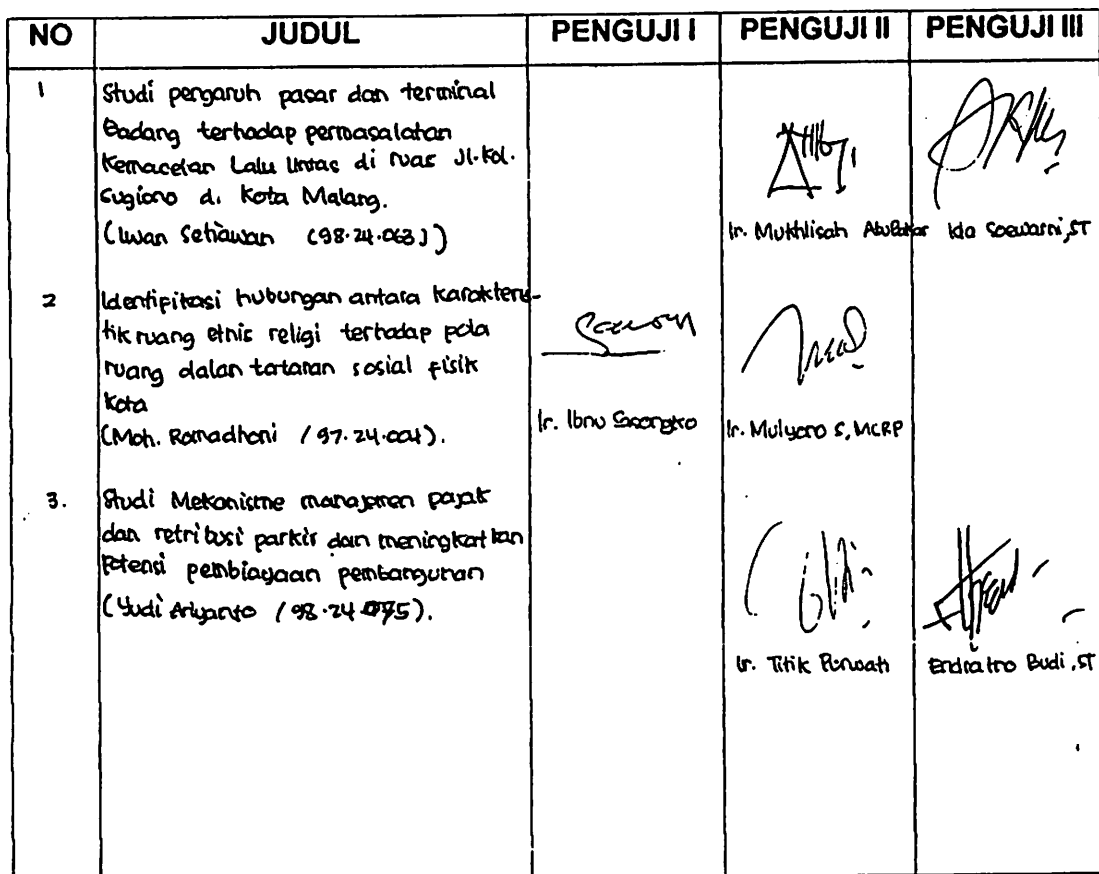 NO JUDUL PENGUJI I PENGUJI II PENGUJI III
1 Studi pengaruh pasar dan terminal
Gadang terhadap permasalahan
Kemacetan Lalu lintas di ruas Jl. Kol.
Sugiono di Kota Malang.
(Iwan Setiawan (98.24.063))
Ir. Mukhlisah Abubakar Ida Soewarni, ST
2 Identifikasi hubungan antara karakteris-
tik ruang etnis religi terhadap pola
ruang dalam tataran sosial fisik
Kota
(Moh. Romadhoni / 97.24.004).
Ir. Ibnu Sasongko Ir. Mulyono S, MCRP
3. Studi Mekanisme manajemen pajak
dan retribusi parkir dan meningkatkan
potensi pembiayaan pembangunan
(Yudi Ariyanto / 98.24.075).
Ir. Titik Poerwati Endratno Budi, ST